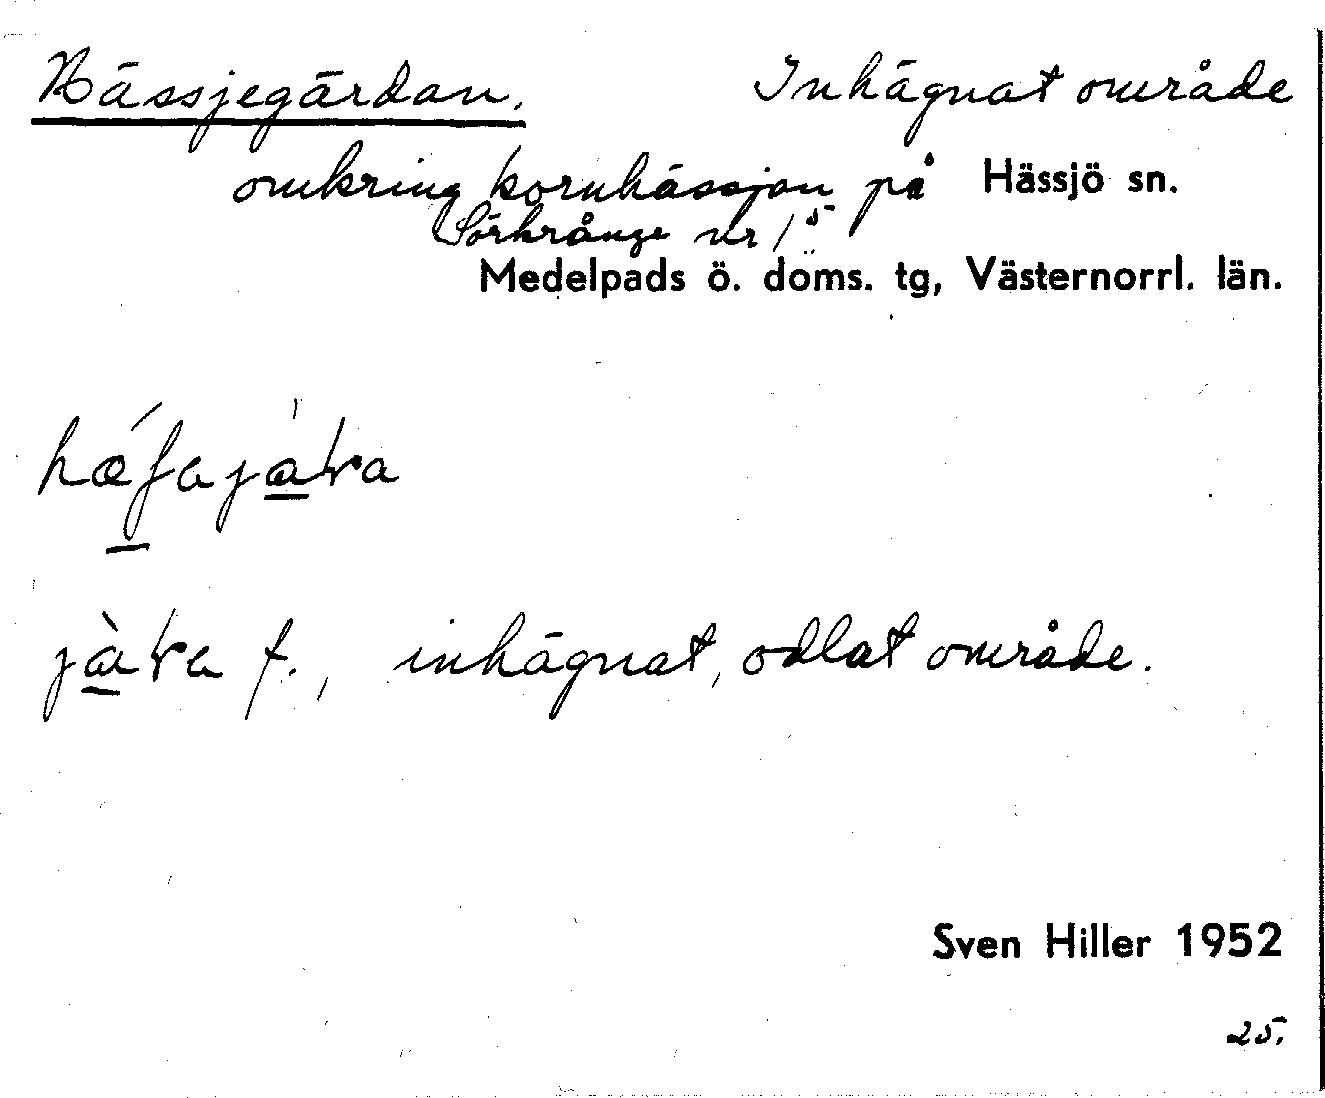 Hässjegärdan. Inhägnat område
omkring kornhässjan på Hässjö sn.
Sörkrånge nr 1⁵
Medelpads ö. doms. tg, Västernorrl. län.
inhägnat, odlat område.
Sven Hiller 1952
25.